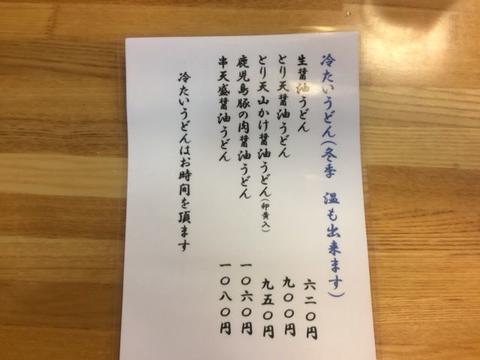 冷たいうどん(冬季 温も出来ます)
生醤油うどん 六二〇円
とり天醤油うどん 九〇〇円
とり天山かけ醤油うどん(卵黄入) 九五〇円
鹿児島豚の肉醤油うどん 一〇六〇円
串天盛醤油うどん 一〇八〇円
冷たいうどんはお時間を頂ます